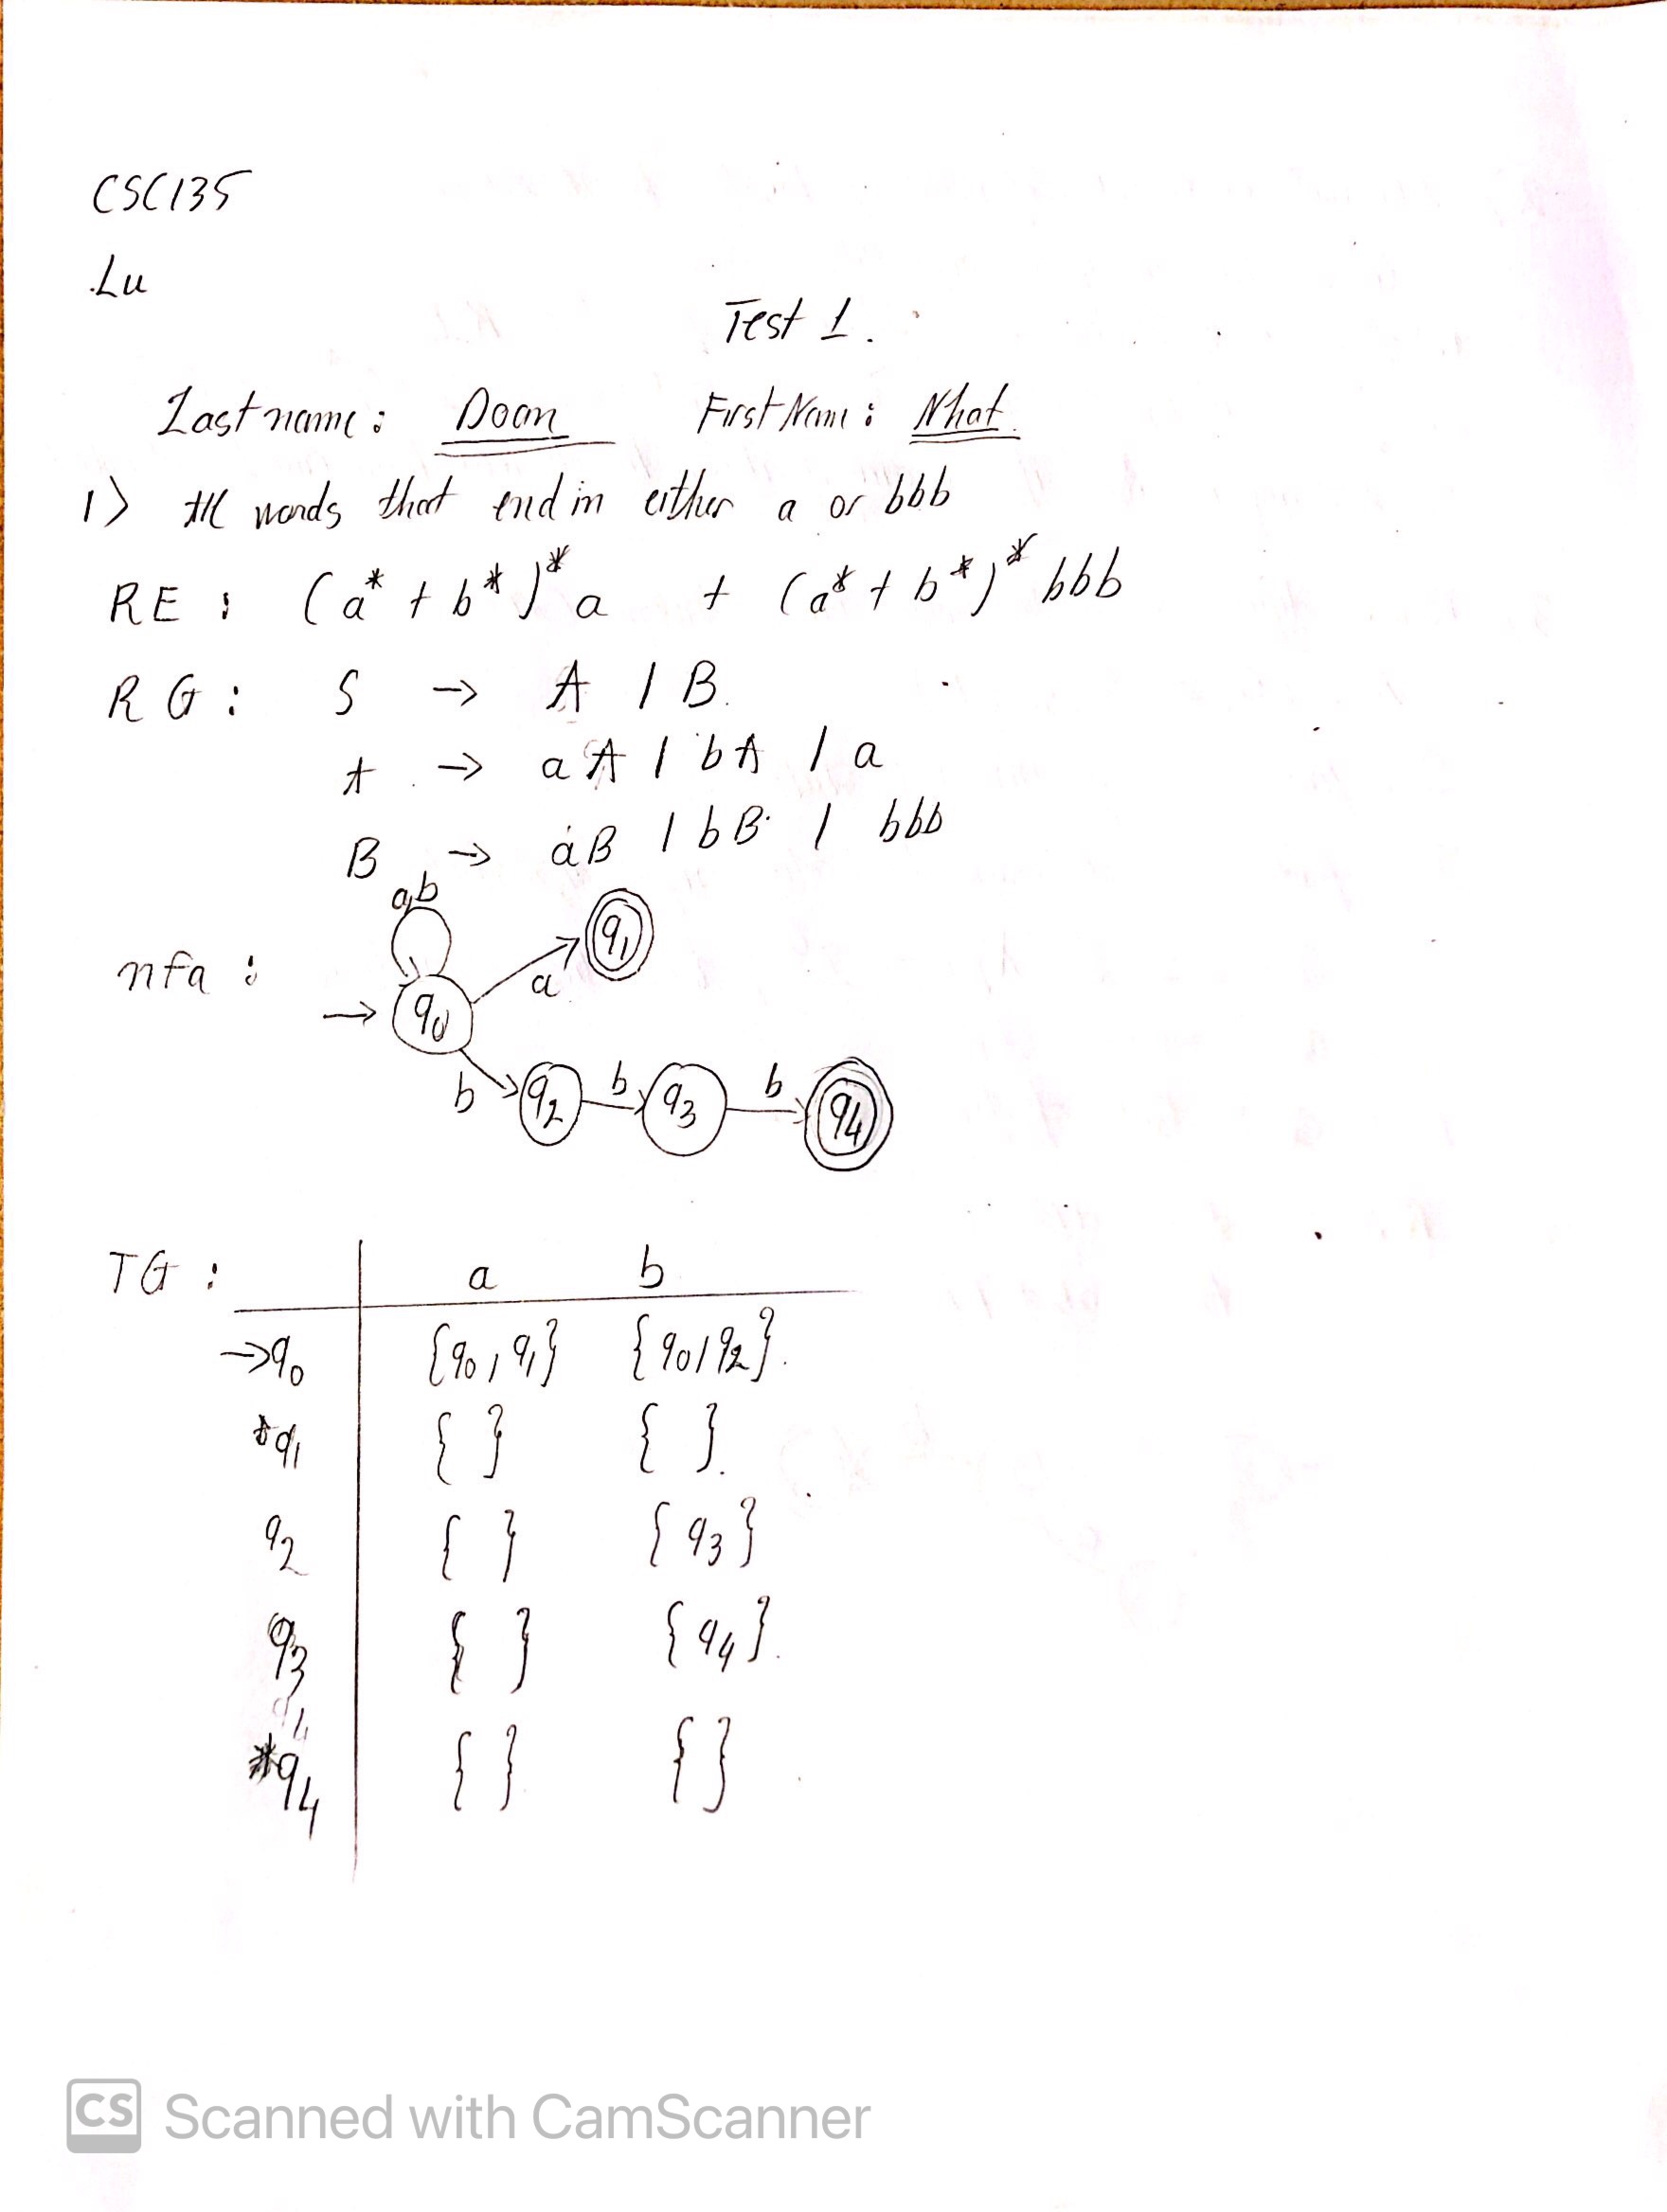 CSC135
Lu
Test 1.
Last name: Doan First Name: Nhat.
1> All words that end in either a or bbb
RE: (a* + b*)* a + (a* + b*)* bbb
RG: S → A | B.
A → aA | bA | a
B → aB | bB | bbb
a,b
nfa: → q0 a q1
b q2 b q3 b q4
TG: a b
→q0 {q0, q1} {q0, q2}.
*q1 { } { }.
q2 { } {q3}
q3 { } {q4}.
*q4 { } { }
CS Scanned with CamScanner